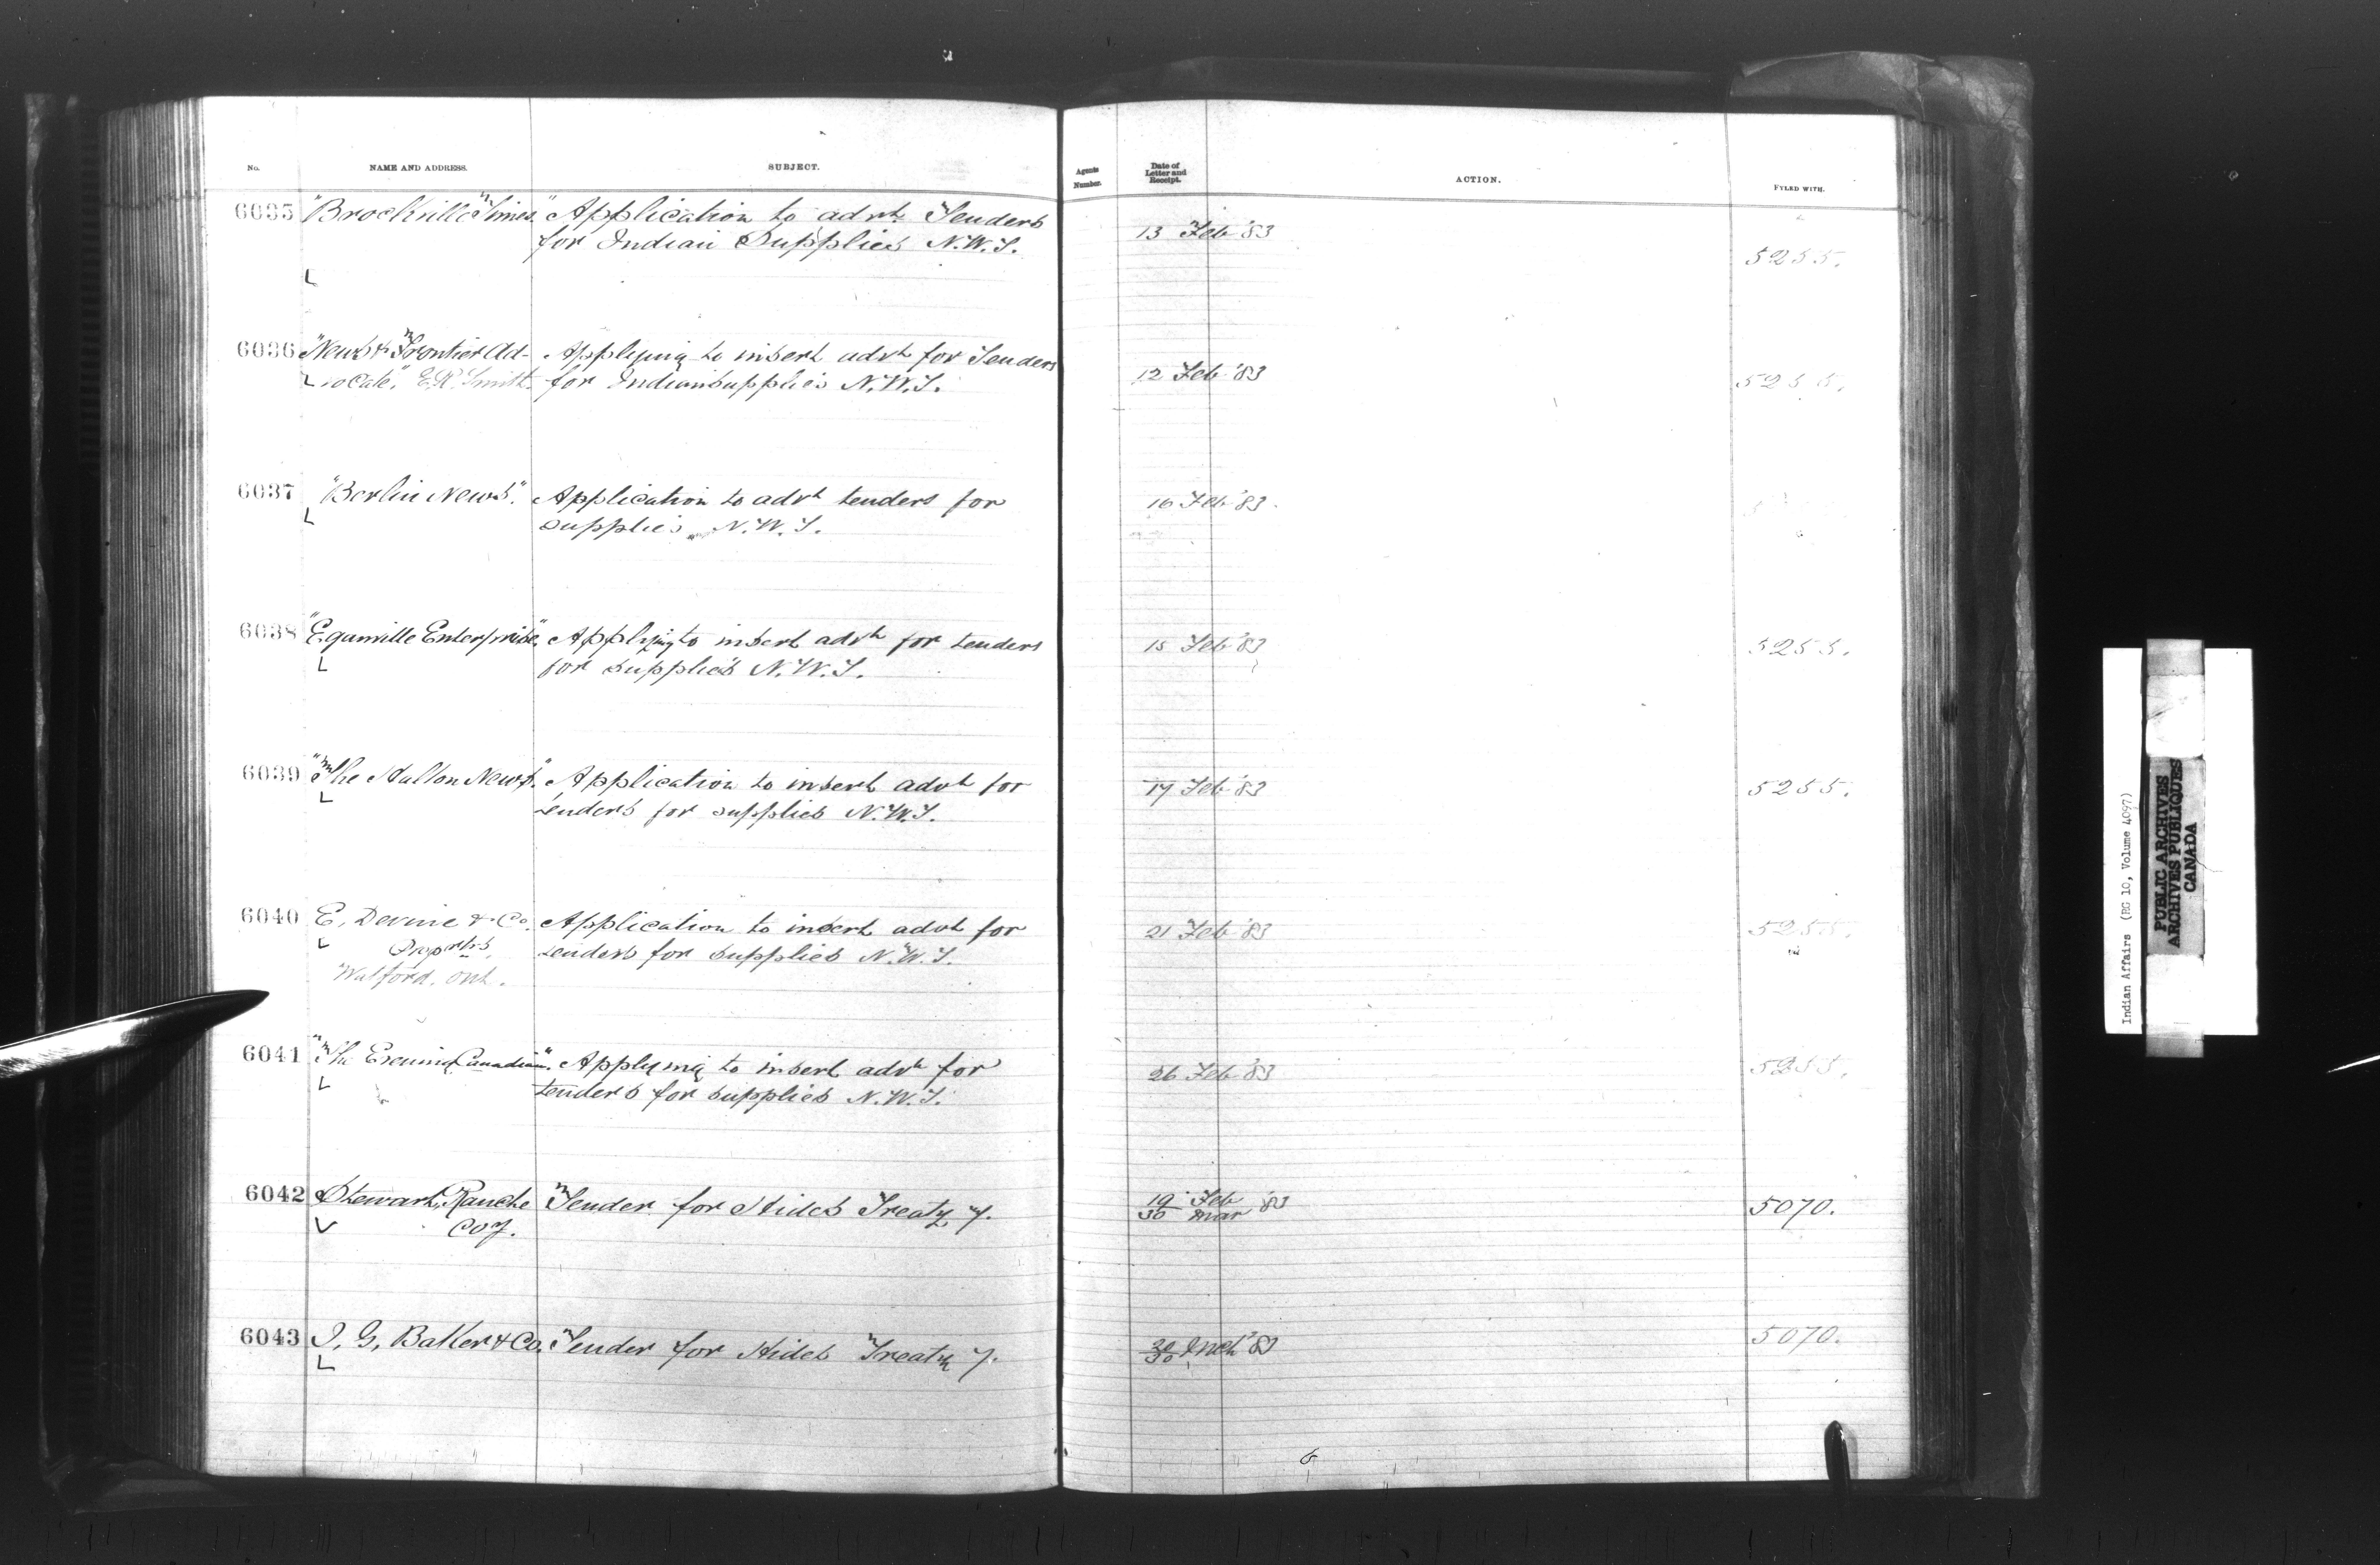 No.
NAME AND ADDRESS.
SUBJECT.
Agents Number.
Date of Letter and Receipt.
ACTION.
FYLED WITH.
6035 "Brockville Times" Application to advt. Tenders
for Indian Supplies N.W.T.
13 Feb '83
5255.
6036 "News & Frontier Ad-
vocate," E.R. Smith.
Applying to insert advt for Tenders
for Indian supplies N.W.T.
12 Feb '83
5255.
6037 "Berlin News". Application to advt tenders for
supplies N.W.T.
16 Feb '83.
6038 "Eganville Enterprise". Applying to insert advt for tenders
for supplies N.W.T.
15 Feb '83
5255.
6039 "The Halton News". Application to insert advt for
tenders for supplies N.W.T.
17 Feb '83
5255.
6040 E. Devine & Co.
Watford. Ont.
Application to insert advt for
tenders for supplies N.W.T.
21 Feb '83
5255.
6041 "The Evening Canadian". Applying to insert advt for
tenders for supplies N.W.T.
26 Feb '83
5255.
6042 Stewart Ranche
Coy.
Tender for Hides Treaty 7.
19 Feb
30 Mar '83
5070.
6043 I. G. Baker & Co. Tender for Hides Treaty 7.
30 Mch '83
5070.
Indian Affairs (RG 10, Volume 4097)
PUBLIC ARCHIVES
ARCHIVES PUBLIQUES
CANADA